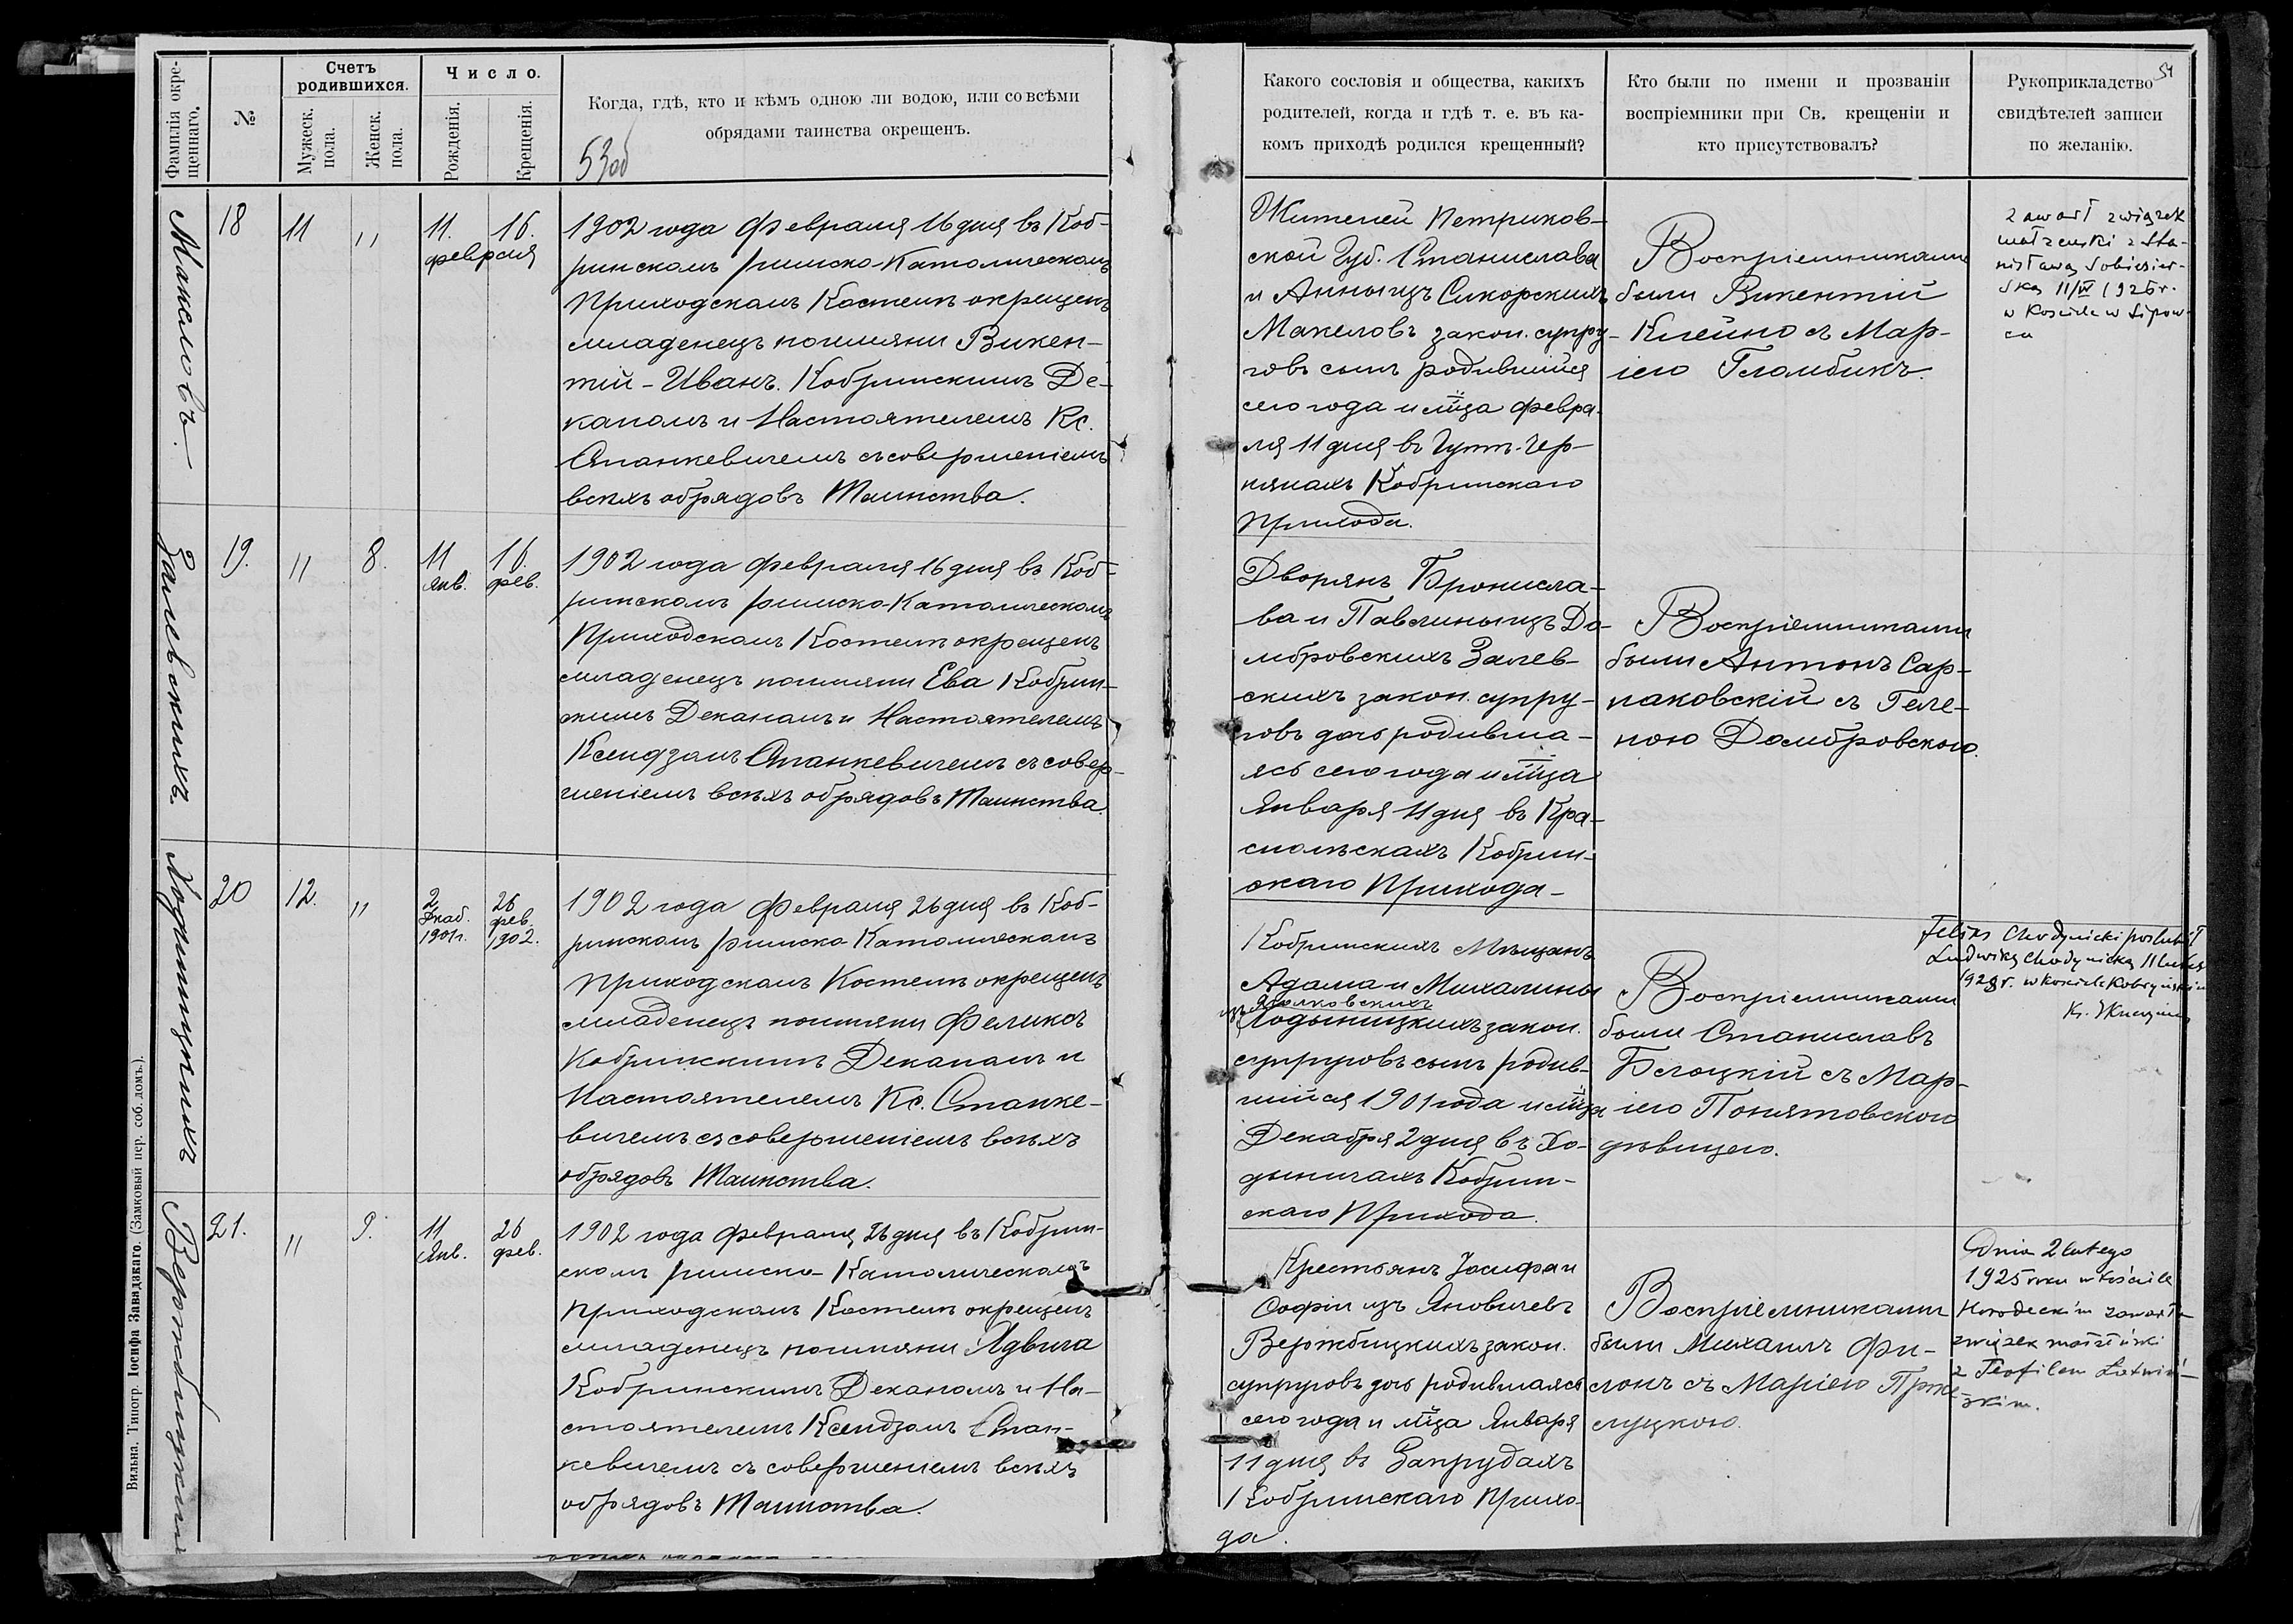 Фамилія окре-
щеннаго.
№
Счетъ
родившихся.
Мужеск.
пола.
Женск.
пола.
Число.
Рожденія.
Крещенія.
Когда, гдѣ, кто и кѣмъ одною ли водою, или со всѣми
обрядами таинства окрещенъ.
53об
Макеловъ.
18
11
"
11. 16.
февраля
1902 года Февраля 16 дня въ Коб-
ринскомъ римско-Католическомъ
Приходскомъ Костелѣ окрещенъ
младенецъ по имяни Викен-
тій-Иванъ. Кобринскимъ Де-
каномъ и Настоятелемъ Кс.
Станкевичемъ съ совершеніемъ
всѣхъ обрядовъ Таинства.
Залевскихъ
19.
"
8.
11
янв.
16.
фев.
1902 года Февраля 16 дня въ Коб-
ринскомъ римско-Католическомъ
Приходскомъ Костелѣ окрещенъ
младенецъ по имяни Ева Кобрин-
скимъ Деканомъ и Настоятелемъ
Ксендзомъ Станкевичемъ съ совер-
шеніемъ всѣхъ обрядовъ Таинства.
Ходыницкихъ
20
12.
"
2
Декаб.
1901г.
26
фев.
1902.
1902 года Февраля 26 дня въ Коб-
ринскомъ римско-Католическомъ
Приходскомъ Костелѣ окрещенъ
младенецъ по имяни Феликсъ
Кобринскимъ Деканомъ и
Настоятелемъ Кс. Станке-
вичемъ съ совершеніемъ всѣхъ
обрядовъ Таинства.
Вержбицкихъ
21.
"
9.
11
Янв.
26
фев.
1902 года Февраля 26 дня въ Кобрин-
скомъ римско-Католическомъ
Приходскомъ Костелѣ окрещенъ
младенецъ по имяни Ядвига
Кобринскимъ Деканомъ и На-
стоятелемъ Ксендзомъ Стан-
кевичемъ съ совершеніемъ всѣхъ
обрядовъ Таинства.
Вильна. Типогр. Іосифа Завадзкаго. (Замковый пер. соб. домъ.).
Какого сословія и общества, какихъ
родителей, когда и гдѣ т. е. въ ка-
комъ приходѣ родился крещенный?
Кто были по имени и прозваніи
воспріемники при Св. крещеніи и
кто присутствовалъ?
Рукоприкладство
свидѣтелей записи
по желанію.
54
Жителей Петриков-
ской Губ. Станислава
и Анны изъ Сикорскихъ
Макеловъ закон. супру-
говъ сынъ родившійся
сего года и м̃ца Февра-
ля 11 дня въ Гутт. Чер-
нянахъ Кобринскаго
Прихода.
Воспріемниками
были Викентій
Клейно съ Мар-
іею Гломбикъ.
zawarł związek
małżeński z Sta-
nisławą Sobiesier-
ską 11/IV 1926 r.
w Kościele w Lipow-
cu
Дворянъ Бронисла-
ва и Павлины изъ До-
мбровскихъ Залев-
скихъ закон. супру-
говъ дочь родивша-
яся сего года и м̃ца
Января 11 дня въ Кра-
скаго Прихода-
Воспріемниками
были Антонъ Сар-
наковскій съ Геле-
ною Домбровскою.
Кобринскихъ Мѣщанъ
Адама и Михалины
Ходыницкихъ закон.
супруговъ сынъ родив-
шійся 1901 года и м̃ца
Декабря 2 дня въ Хо-
дыничахъ Кобрин-
скаго Прихода.
Воспріемниками
были Станиславъ
Бѣлоцкій съ Мар-
іею Понятовскою
дѣвицею.
Feliks Chodynicki poślubił
Ludwikę Chodynicką 11 lutego
1928 r. w kościele Kobryńskim
Крестьянъ Іосифа и
Софіи изъ Яновичевъ
Вержбицкихъ закон.
супруговъ дочь родившаяся
сего года и м̃ца Января
11 дня въ Запрудахъ
Кобринскаго Прихо-
да.
Воспріемниками
были Михаилъ Фи-
лонъ съ Маріею Прже-
слуцкою.
Dnia 2 lutego
1925 roku w kościele
Horodeckim zawarła
związek małżeński
z Teofilem Litwiń-
skim.